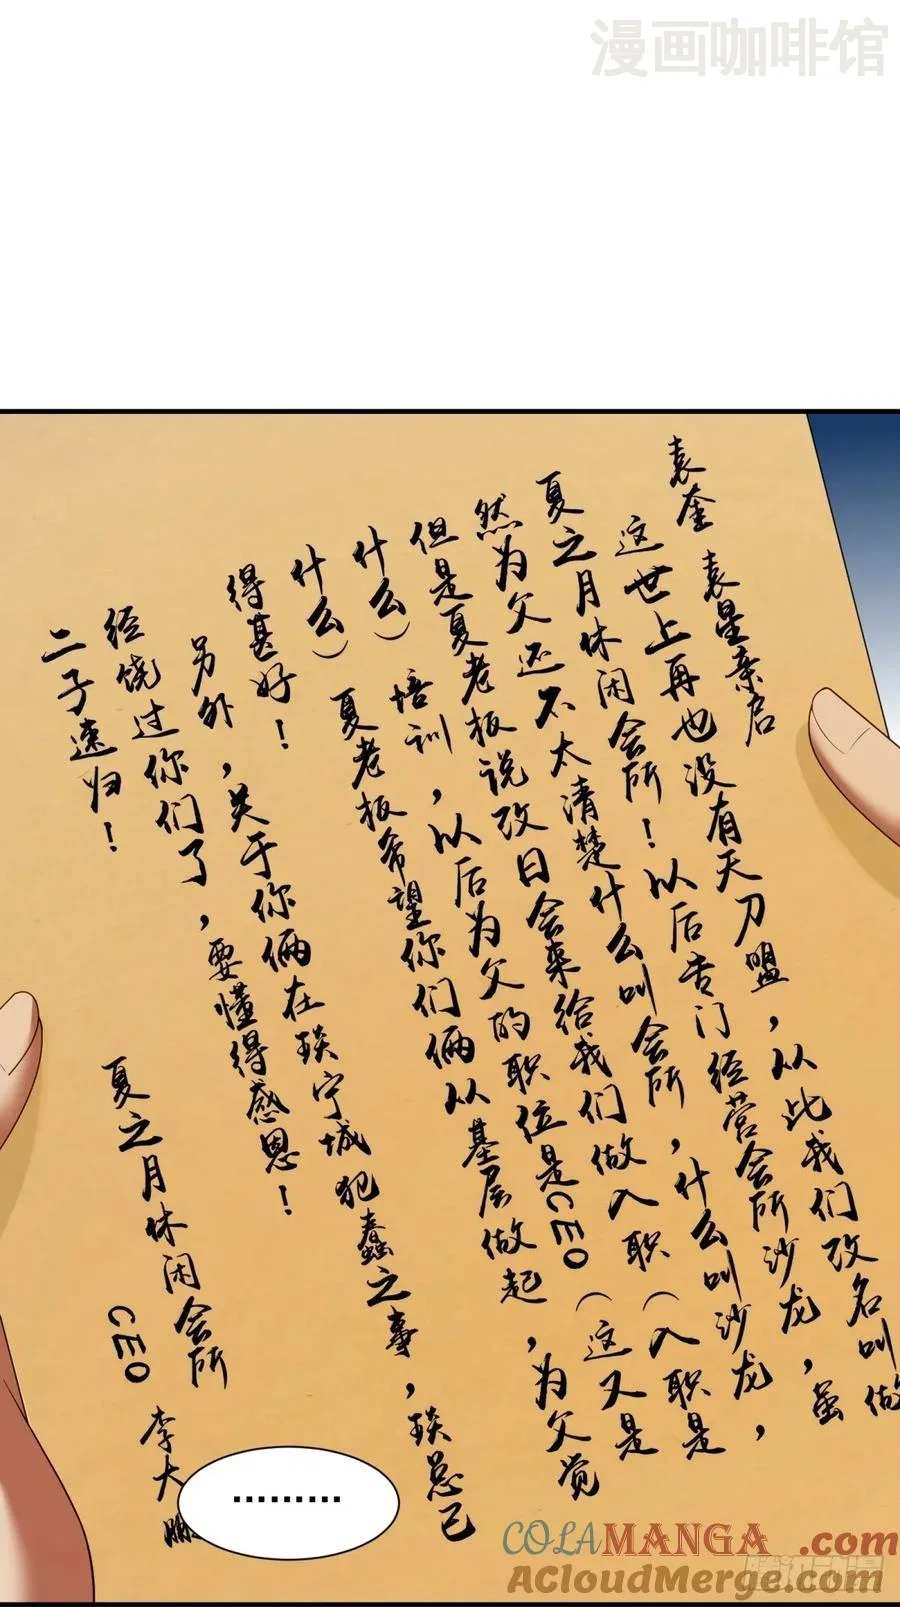 漫画咖啡馆
袁奎 袁星亲启
这世上再也没有天刀盟，从此我们改名叫做
夏之月休闲会所！以后专门经营会所沙龙，虽
然为父还不太清楚什么叫会所，什么叫沙龙，
但是夏老板说改日会来给我们做入职（入职是
什么）培训，以后为父的职位是CEO（这又是
什么）夏老板希望你们俩从基层做起，为父觉
得甚好！
另外，关于你俩在琰宁城犯蠢之事，琰总已
经饶过你们了，要懂得感恩！
二子速归！
夏之月休闲会所
CEO 李大
………
COLAMANGA.com
AcloudMerge.com
腾讯动漫